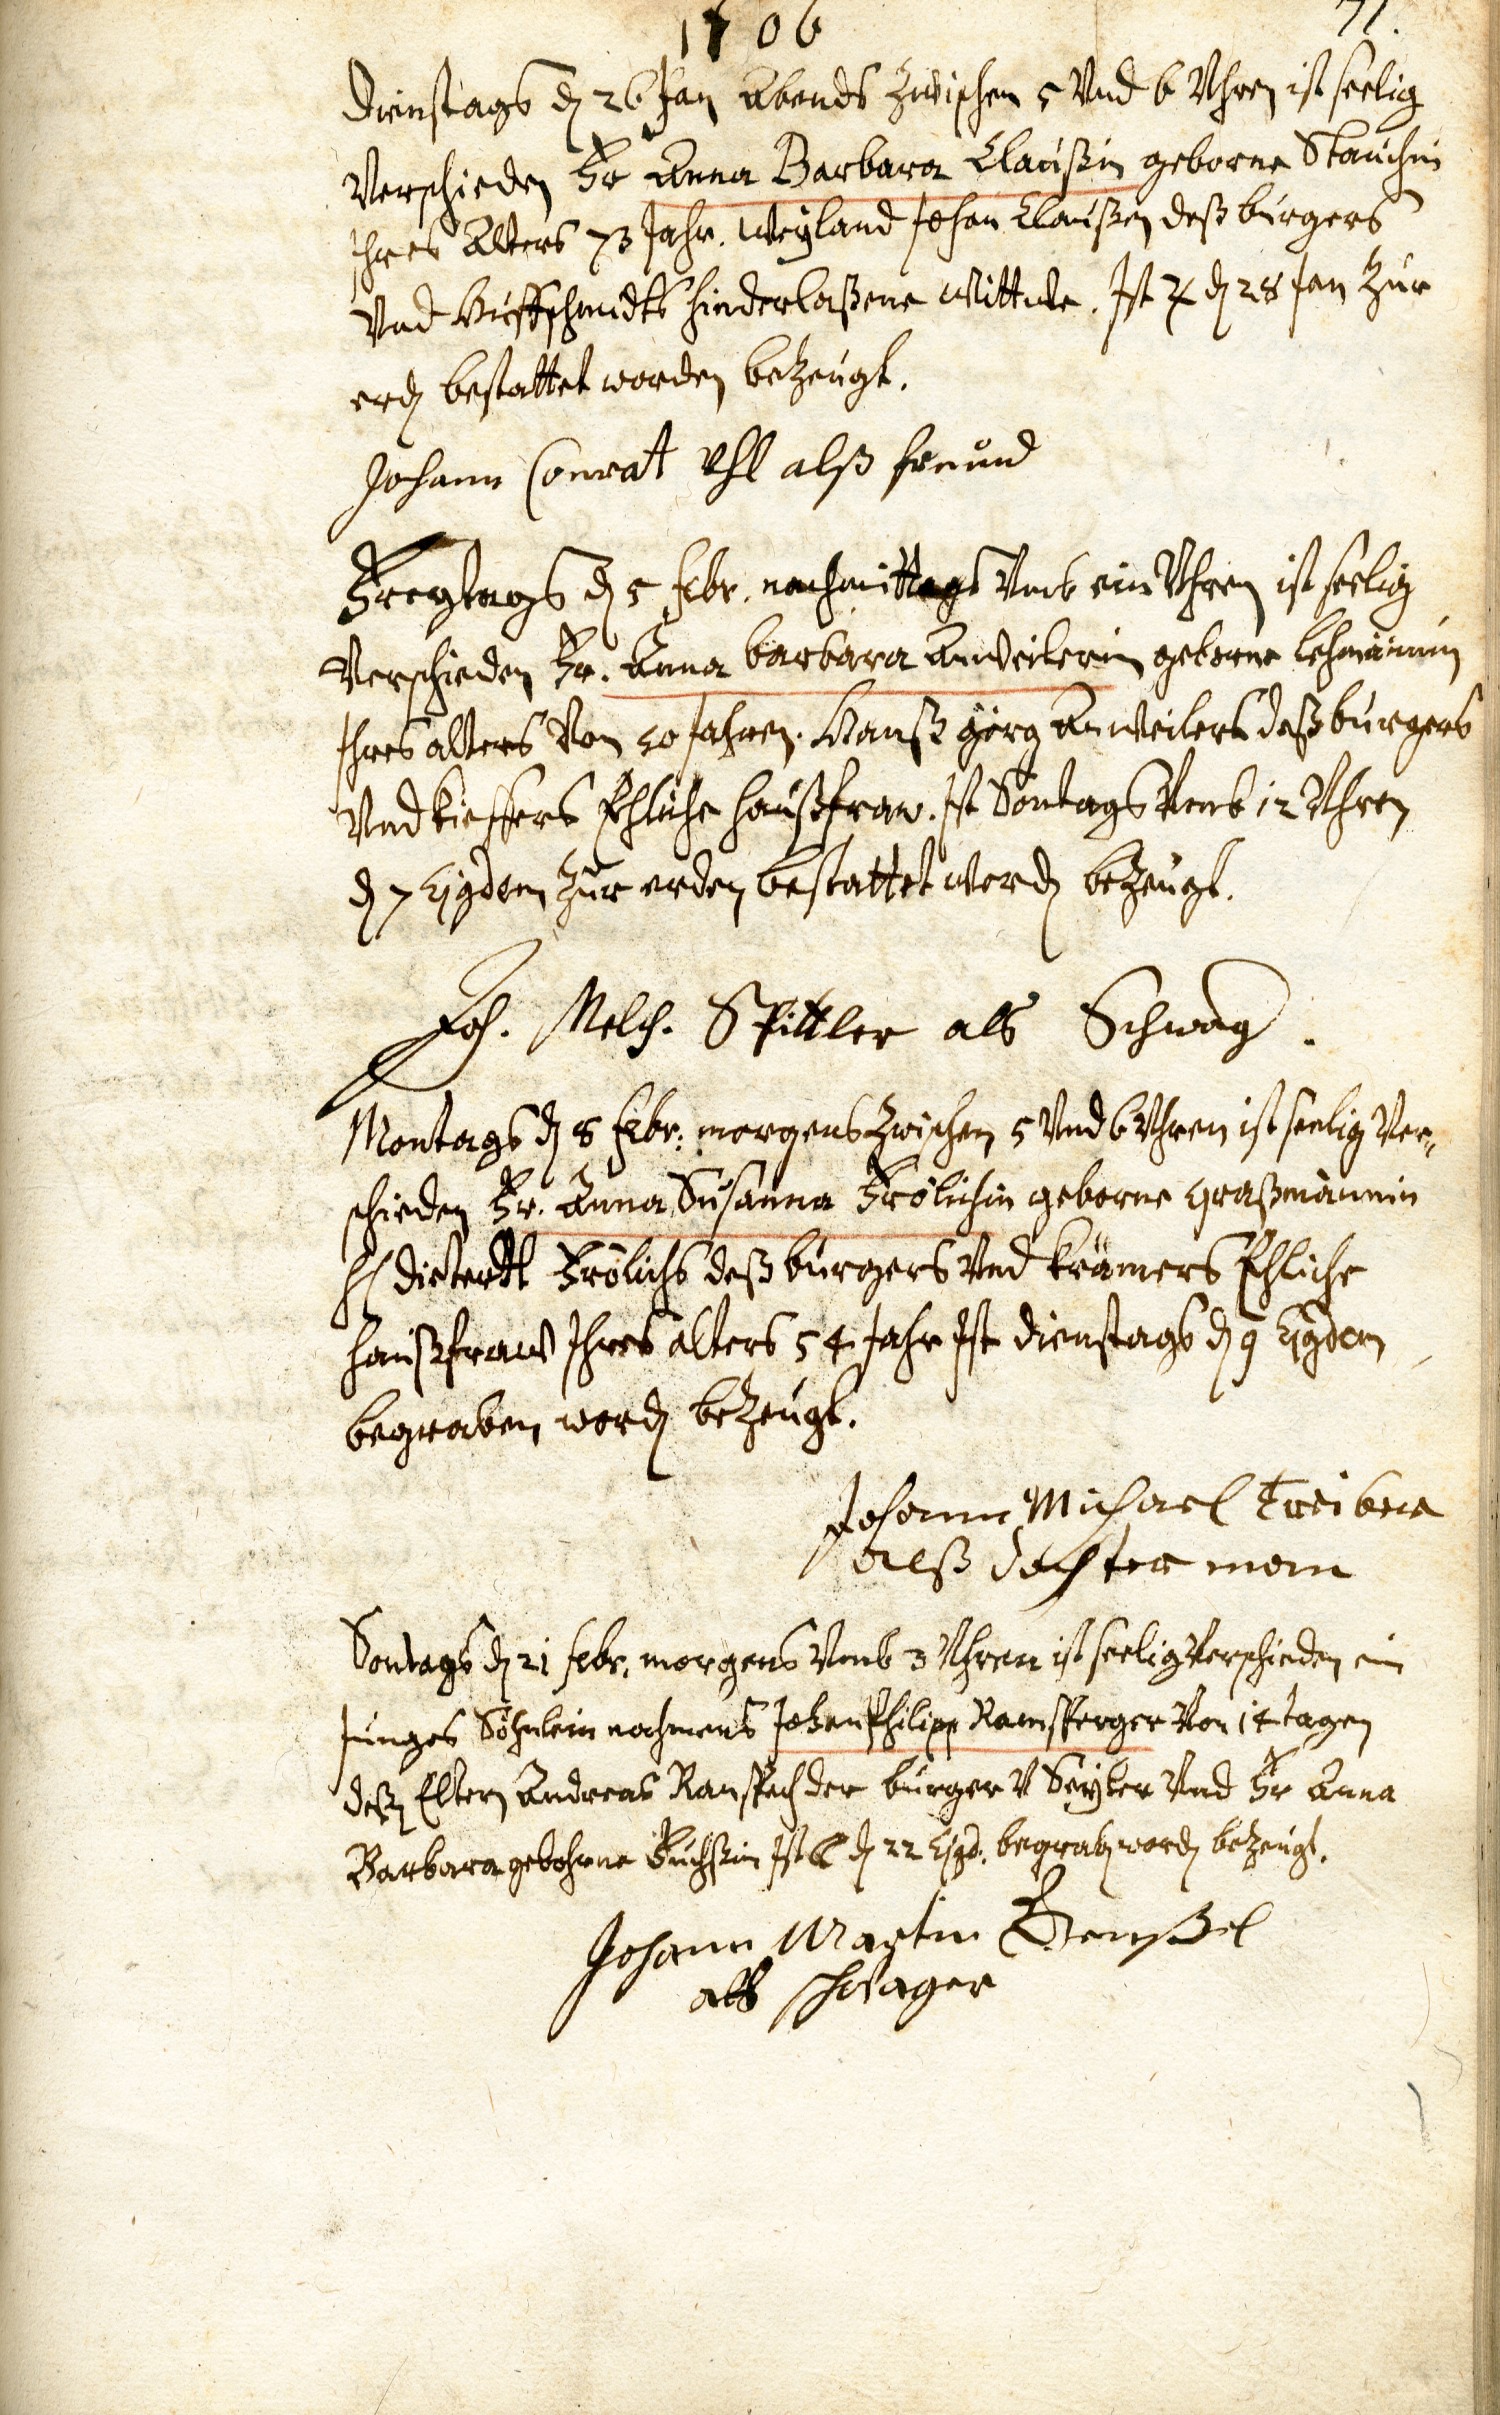 1706
71.
Dienstags d 26 Jan Abends zwischen 5 Vnd 6 Vhren ist seelig
Verschieden Fr Anna Barbara Claußin geborne Stauchin
Ihres Alters 73 Jahr. Weyland Johan Claußen deß burgers
Vnd hinderlaßene Wittwe. Ist ♃ d 28 Jan zur
erd bestattet worden bezeugt.
Johann Conrat Uhl alß freund
Freytags d 5 febr. nachmittags Vmb ein Vhren ist seelig
Verschieden Fr. Anna barbara Anweilerin geborne Lehmännin
Ihres alters Von 50 Jahren. Hanß görg Anweilers deß burgers
Vnd kieffers Ehliche haußfraw. Ist Sontags Vmb 12 Vhren
d 7 Ejgdem zur erden bestattet word bezeugt.
Joh. Melch. Spittler als Schwag.
Montags d 8 febr. morgens zwischen 5 Vnd 6 Vhren ist seelig Ver„
schieden Fr. Anna Susanna Frölichin geborne graßmännin
H Frölichs deß burgers Vnd krämers Ehliche
haußfraw Ihres alters 54 Jahr Ist dienstags d 9 Ejgdem
begraben word bezeugt.
Johann Michael Treiber
alß dochter man
Sontags d 21 febr. morgens Vmb 3 Vhren ist seelig Verschieden ein
Junges Söhnlein nahmens Johan Philipp Ramsperger Von 14 tagen
deß Eltern Andreas der burger V Seyler Vnd Fr Anna
Barbara gebohrne Fuchßin Ist ☾ d 22 Ejgd. begrab word bezeugt.
Johann Martin
alß schwager